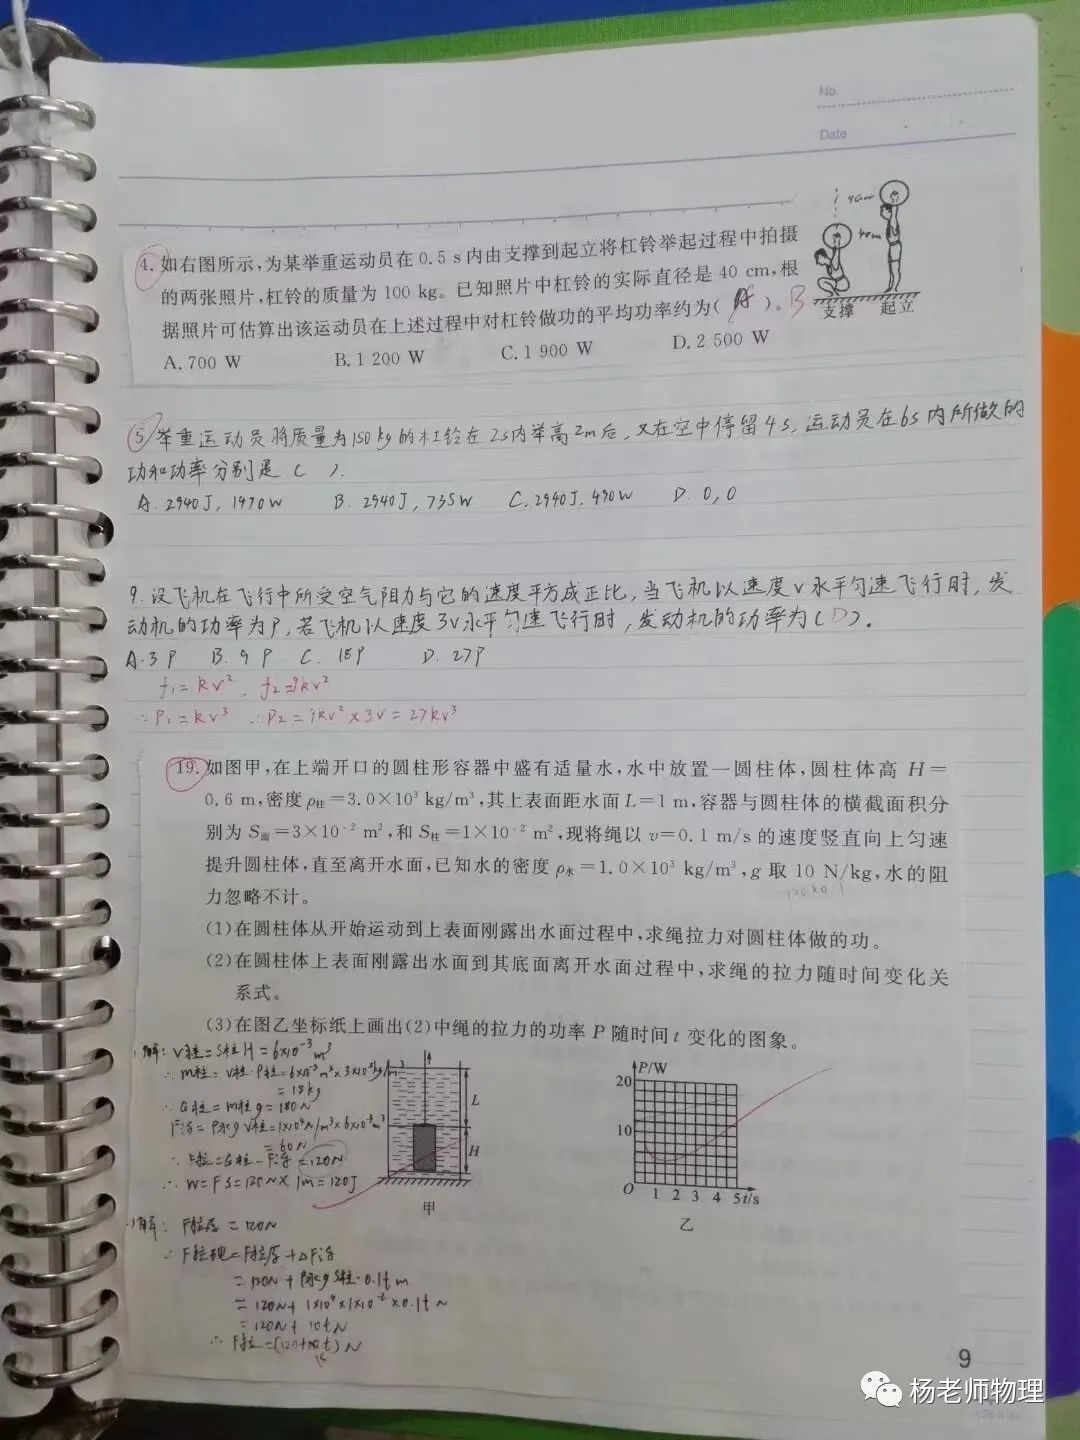 No.
Date
4. 如右图所示,为某举重运动员在0.5 s内由支撑到起立将杠铃举起过程中拍摄
的两张照片,杠铃的质量为100 kg。已知照片中杠铃的实际直径是40 cm,根
据照片可估算出该运动员在上述过程中对杠铃做功的平均功率约为( )。B
A. 700 W B. 1 200 W C. 1 900 W D. 2 500 W
支撑 起立
5 举重运动员将质量为150kg的杠铃在2s内举高2m后,又在空中停留4s,运动员在6s内所做的
功和功率分别是( ).
A. 2940J, 1470W B. 2940J, 735W C. 2940J, 490W D. 0, 0
9. 设飞机在飞行中所受空气阻力与它的速度平方成正比,当飞机以速度v水平匀速飞行时,发
动机的功率为P,若飞机以速度3v水平匀速飞行时,发动机的功率为(D)。
A. 3P B. 9P C. 18P D. 27P
f₁=kv², f₂=9kv²
∴P₁=kv³ ∴P₂=9kv²×3v=27kv³
19. 如图甲,在上端开口的圆柱形容器中盛有适量水,水中放置一圆柱体,圆柱体高 H=
0.6 m,密度 ρ柱=3.0×10³ kg/m³,其上表面距水面 L=1 m,容器与圆柱体的横截面积分
别为 S面=3×10⁻² m²,和 S柱=1×10⁻² m²,现将绳以 v=0.1 m/s 的速度竖直向上匀速
提升圆柱体,直至离开水面,已知水的密度 ρ水=1.0×10³ kg/m³,g 取 10 N/kg,水的阻
力忽略不计。
(1)在圆柱体从开始运动到上表面刚露出水面过程中,求绳拉力对圆柱体做的功。
(2)在圆柱体上表面刚露出水面到其底面离开水面过程中,求绳的拉力随时间变化关
系式。
(3)在图乙坐标纸上画出(2)中绳的拉力的功率 P 随时间 t 变化的图象。
解: V柱=S柱H=6×10⁻³m³
∴m柱=V柱·ρ柱=6×10⁻³m³×3×10³kg/m³
=18kg
∴G柱=m柱g=180N
F浮=ρ水gV柱=1×10⁴N/m³×6×10⁻³m³
=60N
∴F拉=G柱-F浮=120N
∴W=FS=120N×1m=120J
L
H
甲
P/W
20
10
O 1 2 3 4 5 t/s
乙
解: F拉原=120N
∴F拉现=F拉原+ΔF浮
=120N+ρ水gS柱·0.1t m
=120N+1×10⁴×1×10⁻²×0.1t N
=120N+10t N
∴F拉=(120+ t)N
9
杨老师物理